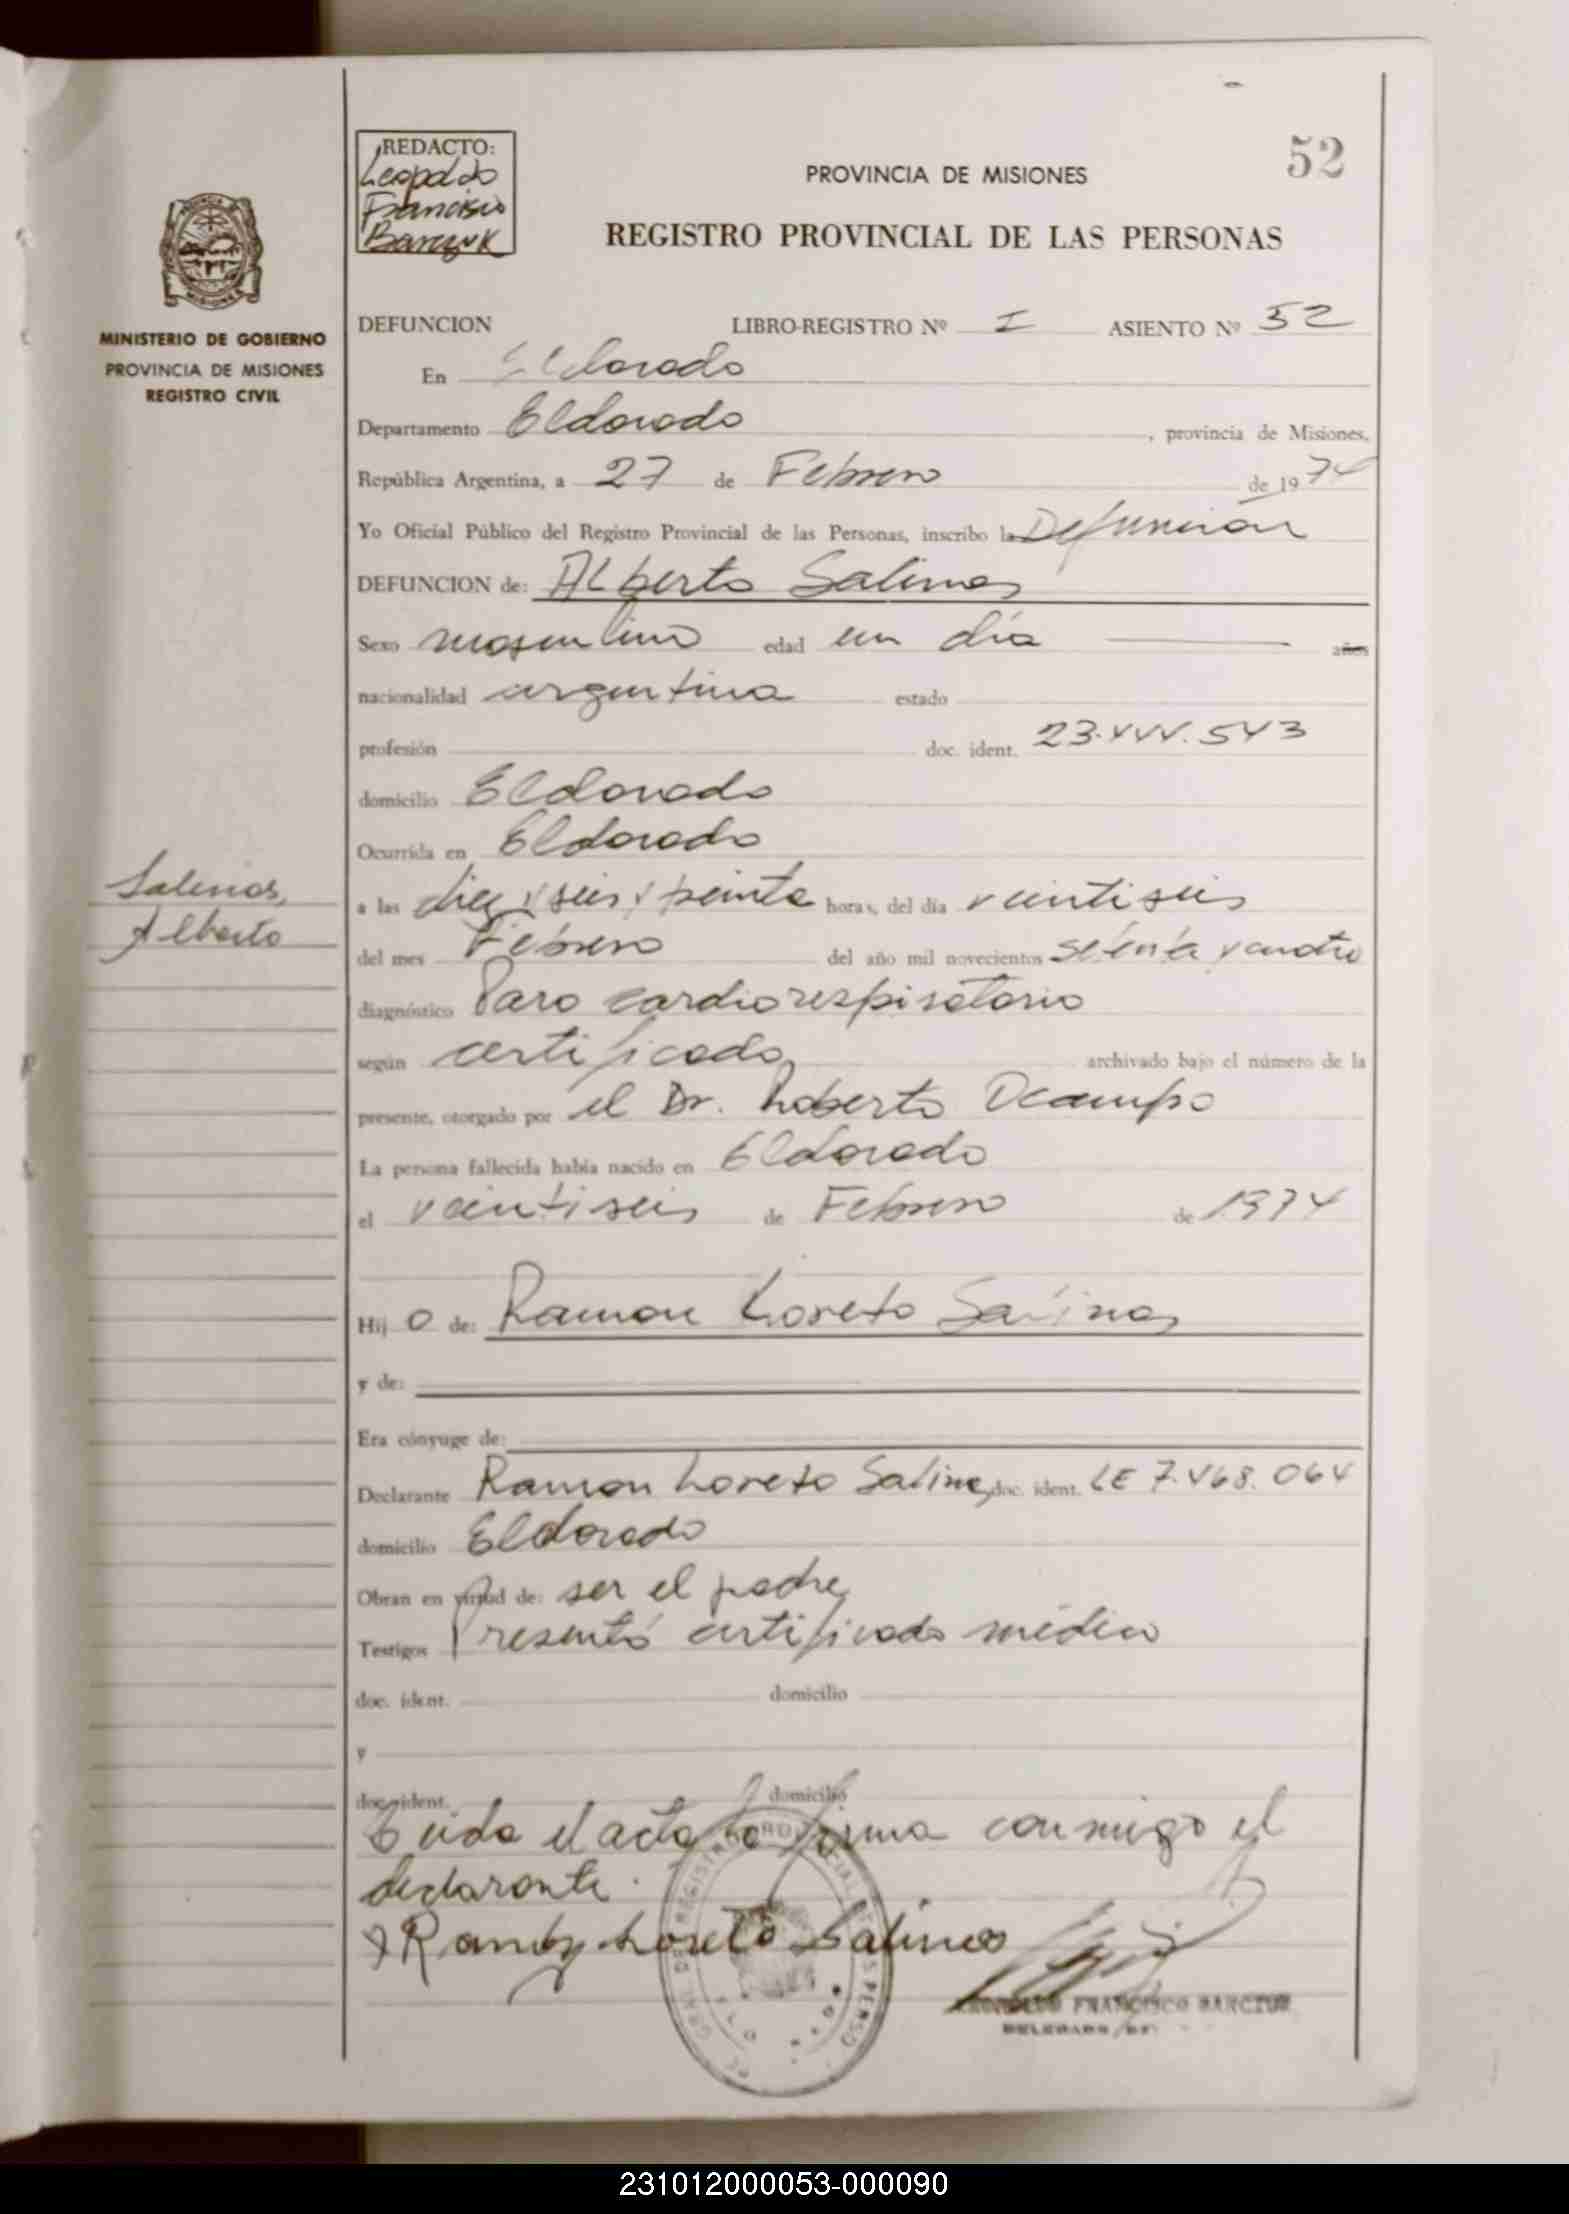 52
REDACTO:
Leopoldo
Francisco
PROVINCIA DE MISIONES
REGISTRO PROVINCIAL DE LAS PERSONAS
MINISTERIO DE GOBIERNO
PROVINCIA DE MISIONES
REGISTRO CIVIL
DEFUNCION LIBRO-REGISTRO Nº I ASIENTO Nº 52
En Eldorado
Departamento Eldorado, provincia de Misiones,
República Argentina, a 27 de Febrero de 1974
Yo Oficial Público del Registro Provincial de las Personas, inscribo la Defunción
DEFUNCION de: Alberto Salinas
Sexo masculino edad un día años
nacionalidad argentina estado
profesión doc. ident. 23.444.543
domicilio Eldorado
Ocurrida en Eldorado
Salinas,
Alberto
a las diez y seis y treinta horas, del día veintiseis
del mes Febrero del año mil novecientos setenta y cuatro
diagnóstico Paro cardiorespiratorio
según certificado archivado bajo el número de la
presente, otorgado por el Dr. Roberto Ocampo
La persona fallecida había nacido en Eldorado
el veintiseis de Febrero de 1974
Hij o de: Ramon Loreto Salinas
y de:
Era cónyuge de:
Declarante Ramon Loreto Salinas doc. ident. LE 7.468.064
domicilio Eldorado
Obran en virtud de: ser el padre
Testigos Presentó certificado médico
doc. ident. domicilio
y
doc. ident. domicilio
Leida el acta la firma conmigo el
declarante.
Ramon Loreto Salinas
LEOPOLDO FRANCISCO
DELEGADO
231012000053-000090